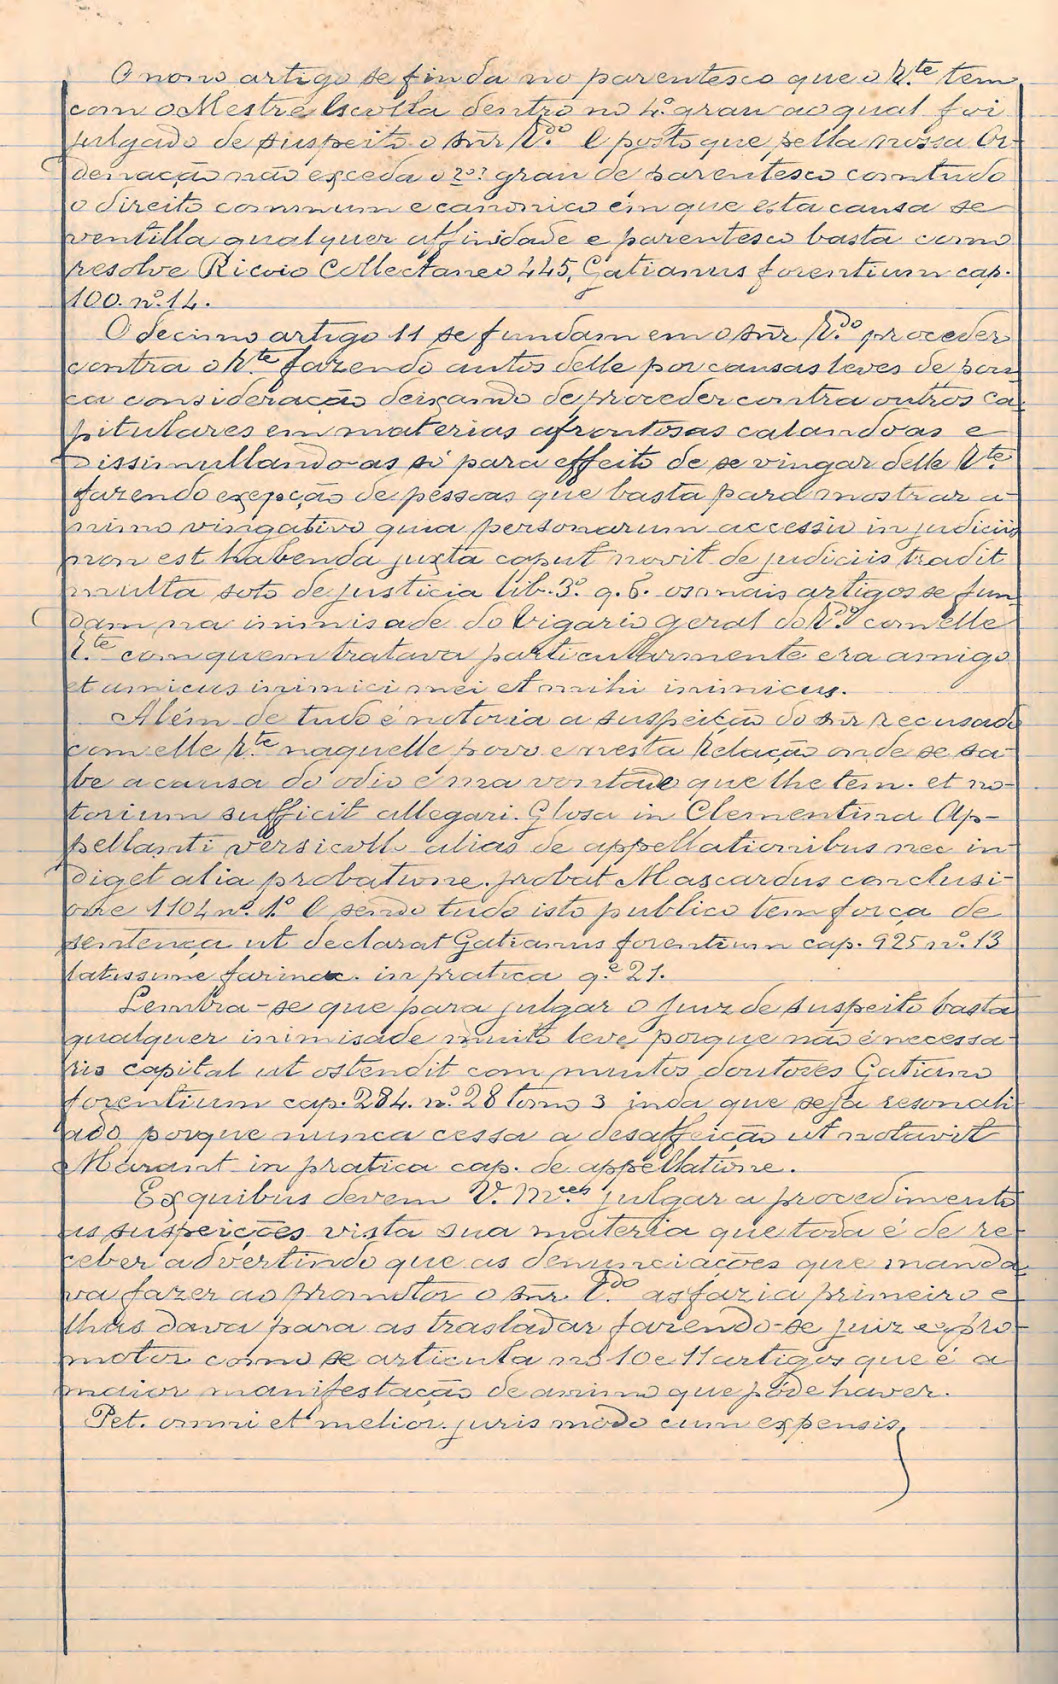 O nono artigo se finda no parentesco que o R.te tem
com o Mestre Escolla dentro no 4.º grau ao qual foi
julgado de suspeito o snr R.do E posto que pella nossa Or-
denação não exceda o 2.º grau de parentesco comtudo
o direito commum e canonico em que esta causa se
ventilla qualquer affinidade e parentesco basta como
resolve Ricoio Collectaneo 445, Gatianus forentium cap.
100. nº 14.
O decimo artigo 11 se fundam em o snr R.do proceder
contra o R.te fazendo autos delle por causas leves de pou-
ca consideração deixando de proceder contra outros ca-
pitulares em materias afrontosas calando-as e
dissimullando-as só para effeito de se vingar delle R.te
fazendo exepção de pessoas que basta para mostrar a-
nimo vingativo quia personarum accessio in judiciis
non est habenda juxta caput novit de judiciis tradit
multa soto de justicia lib. 3.º q. 6. os mais artigos se fun-
dam na inimisade do Vigario geral do R.do com elle
R.te com quem tratava particularmente era amigo
et amicus inimici mei et mihi inimicus.
Além de tudo é notoria a suspeição do snr recusado
com elle R.te naquelle povo e nesta Relação onde se sa-
be a causa do odio e má vontade que lhe tem. et no-
torium sufficit allegari. Glosa in Clementina Ap-
pellanti versicoll. alias de appellationibus nec in-
diget alia probatione. probat Mascardus conclusi-
one 1104 nº. 1.º E sendo tudo isto publico tem força de
sentença ut declarat Gatianus forentium cap. 925 nº. 13
latissime farinac. in pratica q.e 21.
Lembra-se que para julgar o Juiz de suspeito basta
qualquer inimisade muito leve porque não é necessa-
rio capital ut ostendit com muitos doutores Gatiano
forentium cap. 284. nº. 28 tomo 3 inda que seja resonali-
ado, porque nunca cessa a desaffeição ut notavit
Marant in pratica cap. de appellatione.
Ex quibus devem V. M.ces julgar a procedimento
as suspeições vista sua materia que toda é de re-
ceber advertindo que as denunciações que manda-
va fazer ao promotor o snr. R.do as fazia primeiro e
lhas dava para as trasladar fazendo-se juiz e pro-
motor como se articula no 10 e 11 artigos que é a
maior manifestação de animo que póde haver.
Pet. omni et meliori juris modo cum expensis